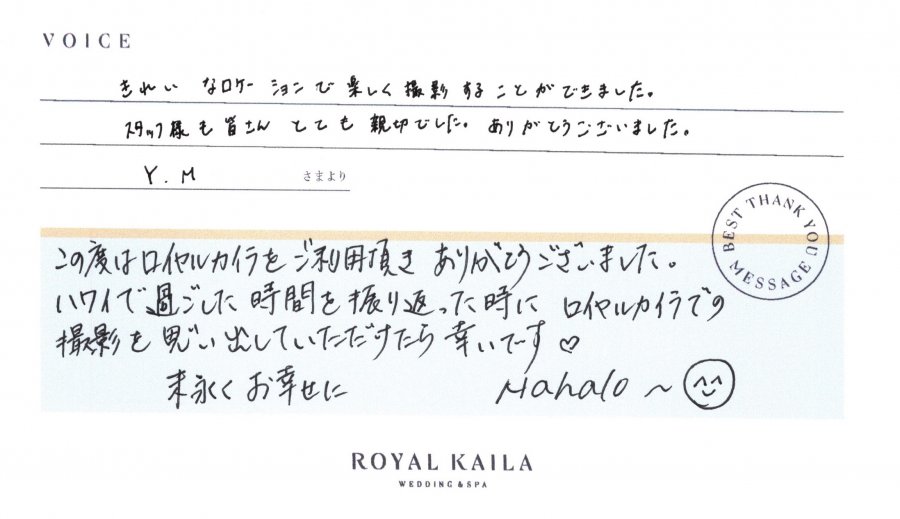 VOICE
きれいなロケーションで楽しく撮影することができました。
スタッフ様も皆さんとても親切でした。ありがとうございました。
Y.M さまより
BEST THANK YOU MESSAGE
この度はロイヤルカイラをご利用頂きありがとうございました。
ハワイで過ごした時間を振り返った時に ロイヤルカイラでの
撮影を思い出していただけたら幸いです♡
末永くお幸せに Mahalo~
ROYAL KAILA
WEDDING & SPA